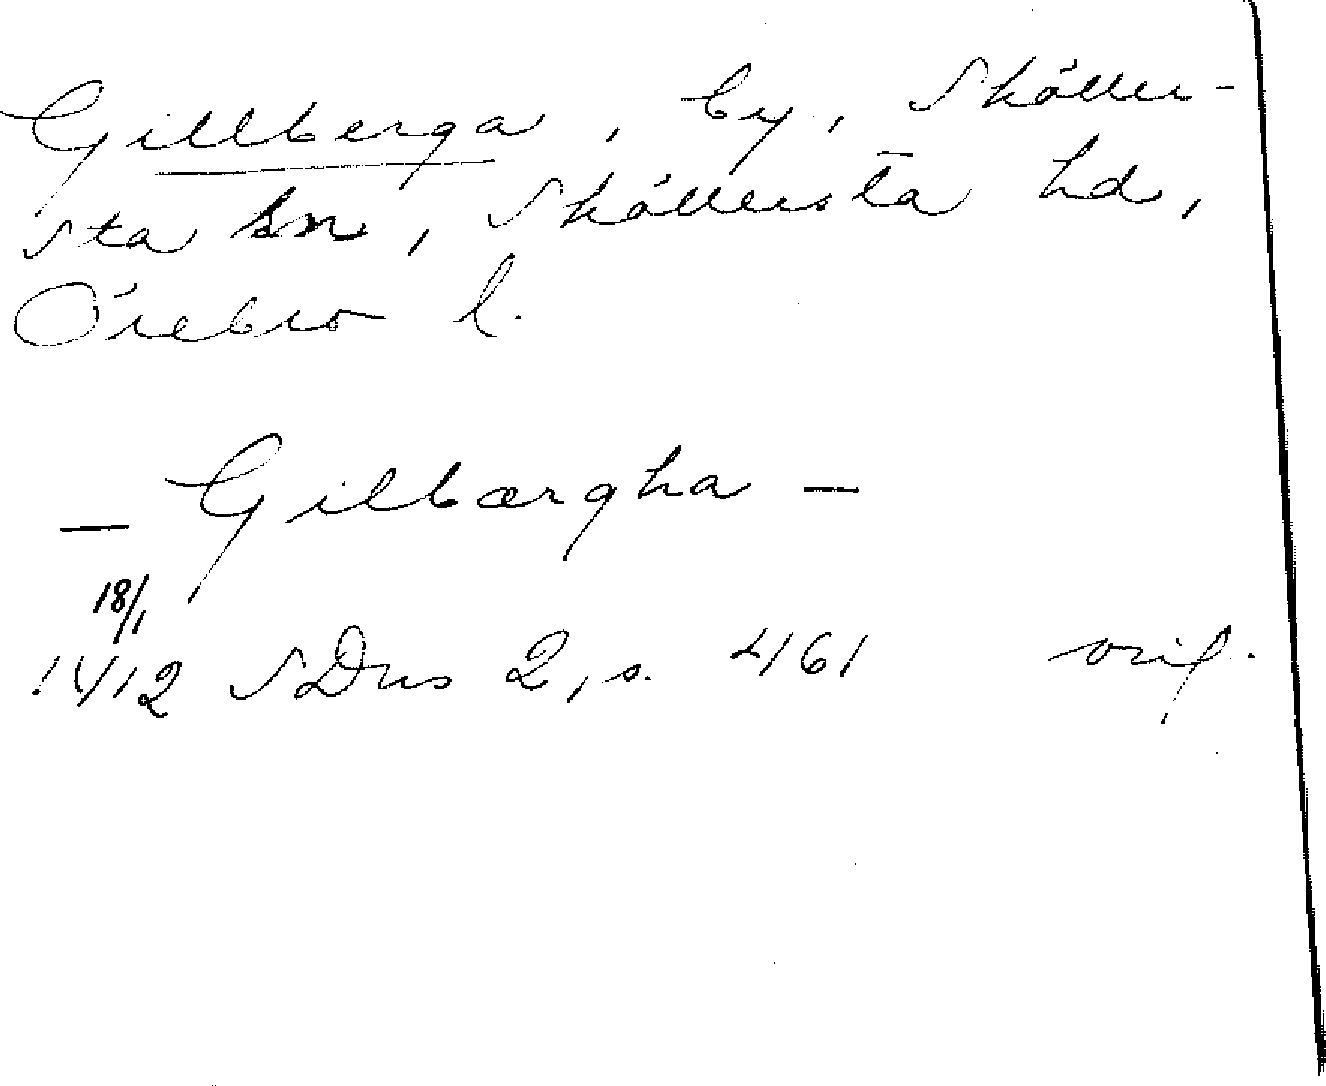 Gillberga, by, Sköller-
sta sn, Sköllersta hd,
Örebro l.
— Gilbærgha —
18/1
1412 SDns 2, s. 461 orig.